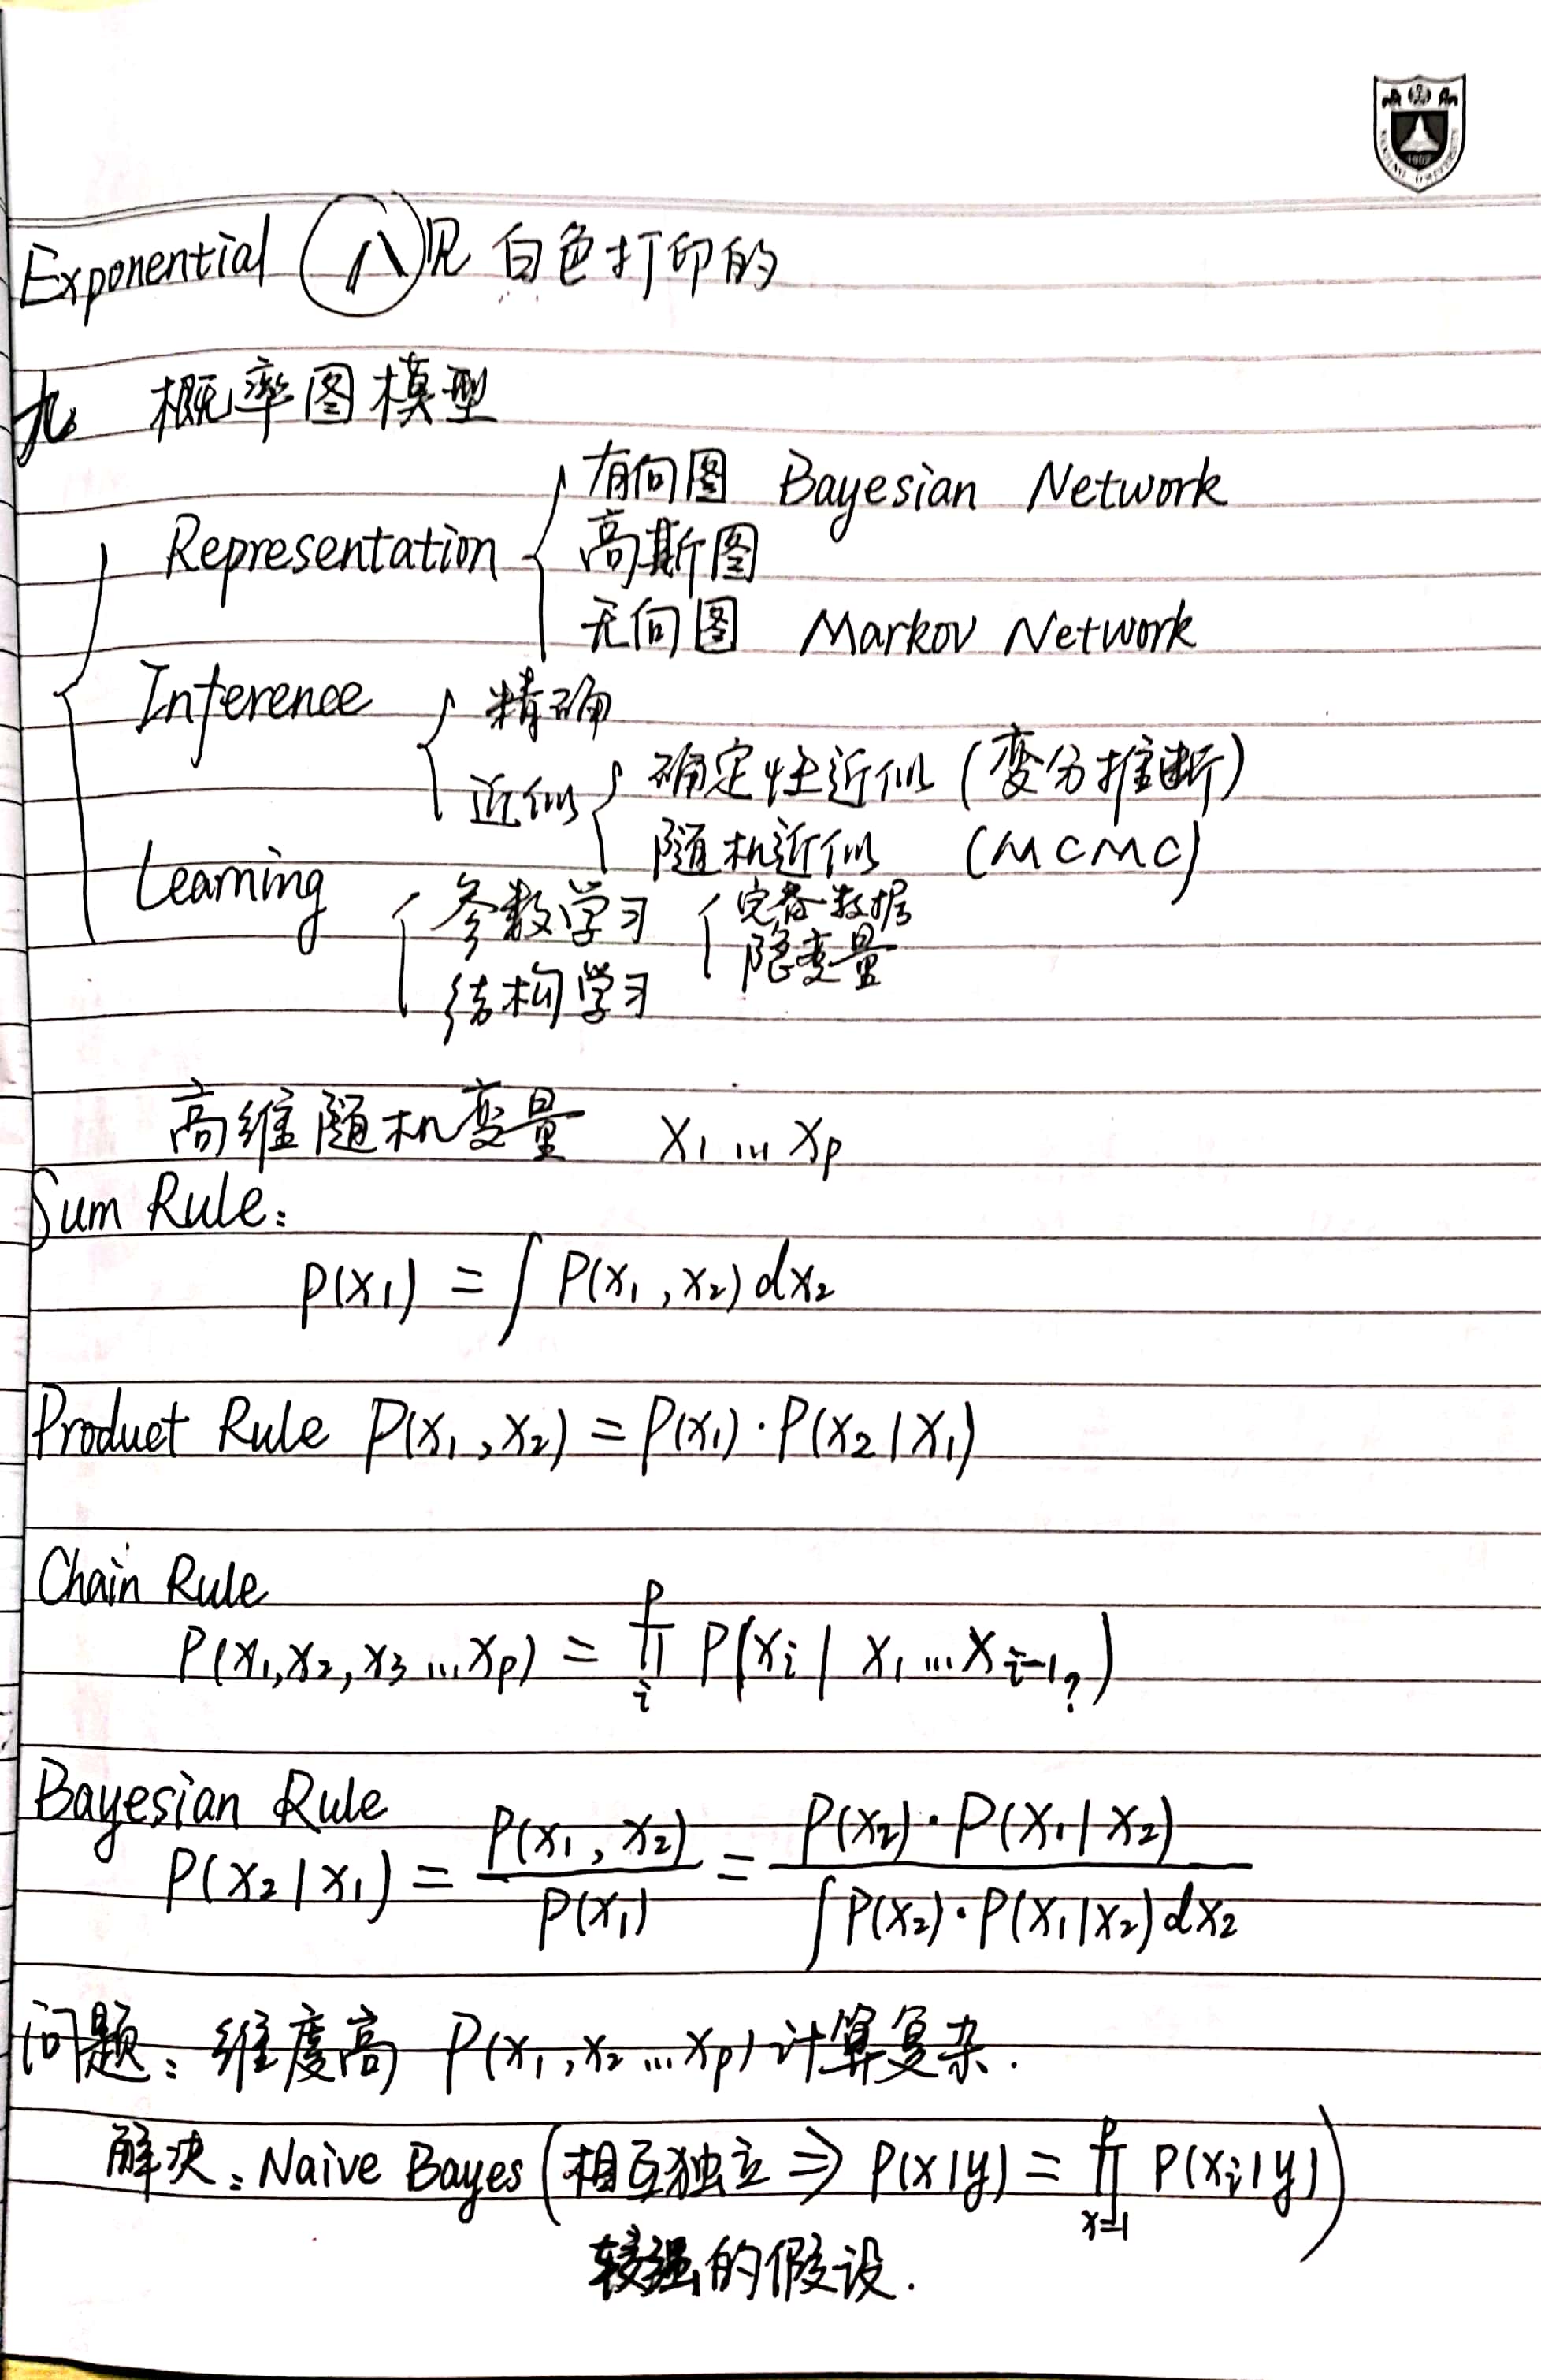 Exponential 八 见白色打印的
九 概率图模型
Representation { 有向图 Bayesian Network
高斯图
无向图 Markov Network
Inference { 精确
近似 { 确定性近似 (变分推断)
随机近似 (MCMC)
Learning { 参数学习 { 完备数据
隐变量
结构学习
高维随机变量 x₁ ... xₚ
Sum Rule:
P(x₁) = ∫ P(x₁, x₂) dx₂
Product Rule P(x₁, x₂) = P(x₁)·P(x₂|x₁)
Chain Rule
P(x₁, x₂, x₃ ... xₚ) = ∏ᵢᵖ P(xᵢ | x₁ ... xᵢ₋₁?)
Bayesian Rule
P(x₂|x₁) = P(x₁, x₂) / P(x₁) = P(x₂)·P(x₁|x₂) / ∫P(x₂)·P(x₁|x₂)dx₂
问题: 维度高 P(x₁, x₂ ... xₚ) 计算复杂.
解决: Naive Bayes (相互独立 ⇒ P(x|y) = ∏ₓ₌₁ᵖ P(xᵢ|y))
较强的假设.